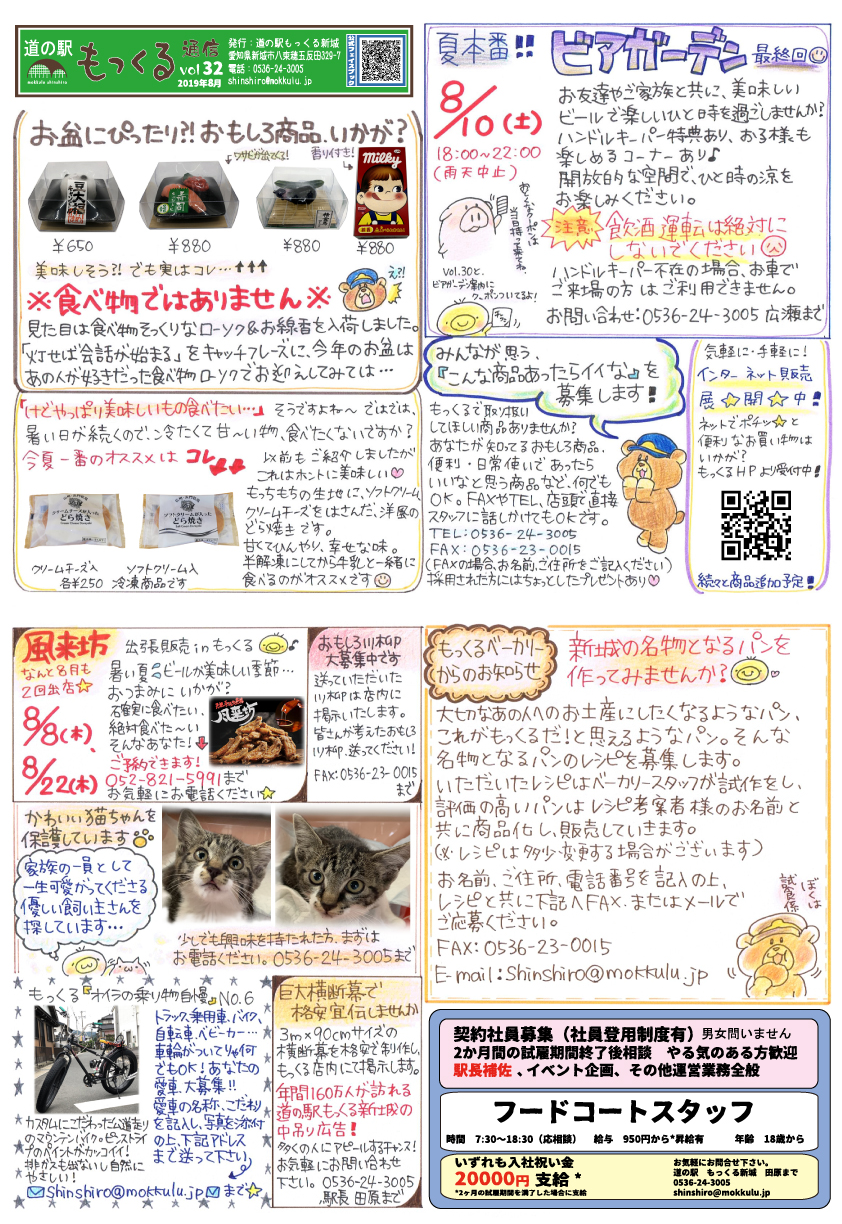 道の駅
もっくる 通信
mokkulu shinshiro
vol 32
2019年8月
発行：道の駅もっくる新城
愛知県新城市八束穂五反田329-7
電話：0536-24-3005
shinshiro@mokkulu.jp
公式フェイスブック
お盆にぴったり?! おもしろ商品、いかが?
ワサビが出てくる!
香り付き!
Milky
豆大福
寿司
¥650
¥880
¥880
¥880
美味しそう?! でも実はコレ…↑↑↑
え?!
※食べ物ではありません※
見た目は食べ物そっくりなローソク&お線香を入荷しました。
「灯せば会話が始まる」をキャッチフレーズに、今年のお盆は
あの人が好きだった食べ物ローソクでお迎えしてみては…
『けどやっぱり美味しいもの食べたい…』そうですよね〜 ではでは、
暑い日が続くので、冷たくて甘〜い物、食べたくないですか?
今夏一番のオススメは コレ
以前もご紹介しましたが
これはホントに美味しい♡
もっちもちの生地に、ソフトクリーム、
クリームチーズをはさんだ、洋風の
どら焼きです。
甘くてひんやり、幸せな味。
半解凍にしてから牛乳と一緒に
食べるのがオススメです
クリームチーズが入った
どら焼き
ソフトクリームが入った
どら焼き
クリームチーズ入
各¥250
ソフトクリーム入
冷凍商品です
夏本番!! ビアガーデン 最終回
8/10(土)
18:00〜22:00
(雨天中止)
お友達やご家族と共に、美味しい
ビールで楽しいひと時を過ごしませんか?
ハンドルキーパー特典あり、お子様も
楽しめるコーナーあり♪
開放的な空間で、ひと時の涼を
お楽しみください。
注意 飲酒運転は絶対に
しないでください
ハンドルキーパー不在の場合、お車で
ご来場の方はご利用できません。
お問い合わせ：0536-24-3005 広瀬まで
めぐクーポンは
当日持って来てね。
vol.30と、
ビアガーデン案内に
クーポンついてるよ!
みんなが思う、
『こんな商品あったらイイな』を
募集します!
もっくるで取り扱い
してほしい商品ありませんか?
あなたが知ってるおもしろ商品、
便利・日常使いであったら
いいなと思う商品など、何でも
OK。FAXやTEL、店頭で直接
スタッフに話しかけてもOKです。
TEL：0536-24-3005
FAX：0536-23-0015
(FAXの場合、お名前、ご住所をご記入ください)
採用された方にはちょっとしたプレゼントあり♡
気軽に・手軽に!
インターネット販売
展☆開☆中!!
ネットでポチッ☆と
便利なお買い物は
いかが?
もっくるHPより受付中!
続々と商品追加予定!
風来坊
なんと8月も
2回出店☆
8/8(木)、
8/22(木)
出張販売 in もっくる ♪
暑い夏 ビールが美味しい季節…
おつまみにいかが?
確実に食べたい、
絶対食べた〜い
そんなあなた!
ご予約できます!
052-821-5991まで
お気軽にお電話ください☆
風来坊
おもしろ川柳
大募集中です
送っていただいた
川柳は店内に
掲示いたします。
皆さんが考えたおもしろ
川柳、送ってください!
FAX：0536-23-0015
まで
かわいい猫ちゃんを
保護しています
家族の一員として
一生可愛がってくださる
優しい飼い主さんを
探しています…
少しでも興味を持たれた方、まずは
お電話ください。0536-24-3005まで
もっくる『オイラの乗り物自慢』No.6
トラック、乗用車、バイク、
自転車、ベビーカー…
車輪がついてりゃ何
でもOK! あなたの
愛車、大募集!!
愛車の名称、こだわり
を記入し、写真を添付
の上、下記アドレス
まで送って下さい。
カスタムにこだわった山道走り
のマウンテンバイク。ピンストライ
プのペイントがカッコイイ!
排ガスも出ないし自然に
やさしい!
shinshiro@mokkulu.jp まで☆
巨大横断幕で
格安宣伝しませんか
3m×90cmサイズの
横断幕を格安で制作し、
もっくる店内にて掲示します。
年間160万人が訪れる
道の駅もっくる新城の
中吊り広告!
多くの人にアピールするチャンス!
お気軽にお問い合わせ
下さい。0536-24-3005
駅長 田原まで
もっくるベーカリー
からのお知らせ
新城の名物となるパンを
作ってみませんか?
大切なあの人へのお土産にしたくなるようなパン、
これがもっくるだ!と思えるようなパン。そんな
名物となるパンのレシピを募集します。
いただいたレシピはベーカリースタッフが試作をし、
評価の高いパンはレシピ考案者様のお名前と
共に商品化し、販売していきます。
(※レシピは多少変更する場合がございます)
お名前、ご住所、電話番号を記入の上、
レシピと共に下記へFAX、またはメールで
ご応募ください。
FAX：0536-23-0015
E-mail：shinshiro@mokkulu.jp
ぼくは
試食係
契約社員募集（社員登用制度有）男女問いません
2か月間の試雇期間終了後相談　やる気のある方歓迎
駅長補佐、イベント企画、その他運営業務全般
フードコートスタッフ
時間　7:30〜18:30（応相談）　給与　950円から*昇給有　年齢　18歳から
いずれも入社祝い金
20000円 支給 *
*2ヶ月の試雇期間を満了した場合に支給
お気軽にお問合せ下さい。
道の駅　もっくる新城　田原まで
0536-24-3005
shinshiro@mokkulu.jp